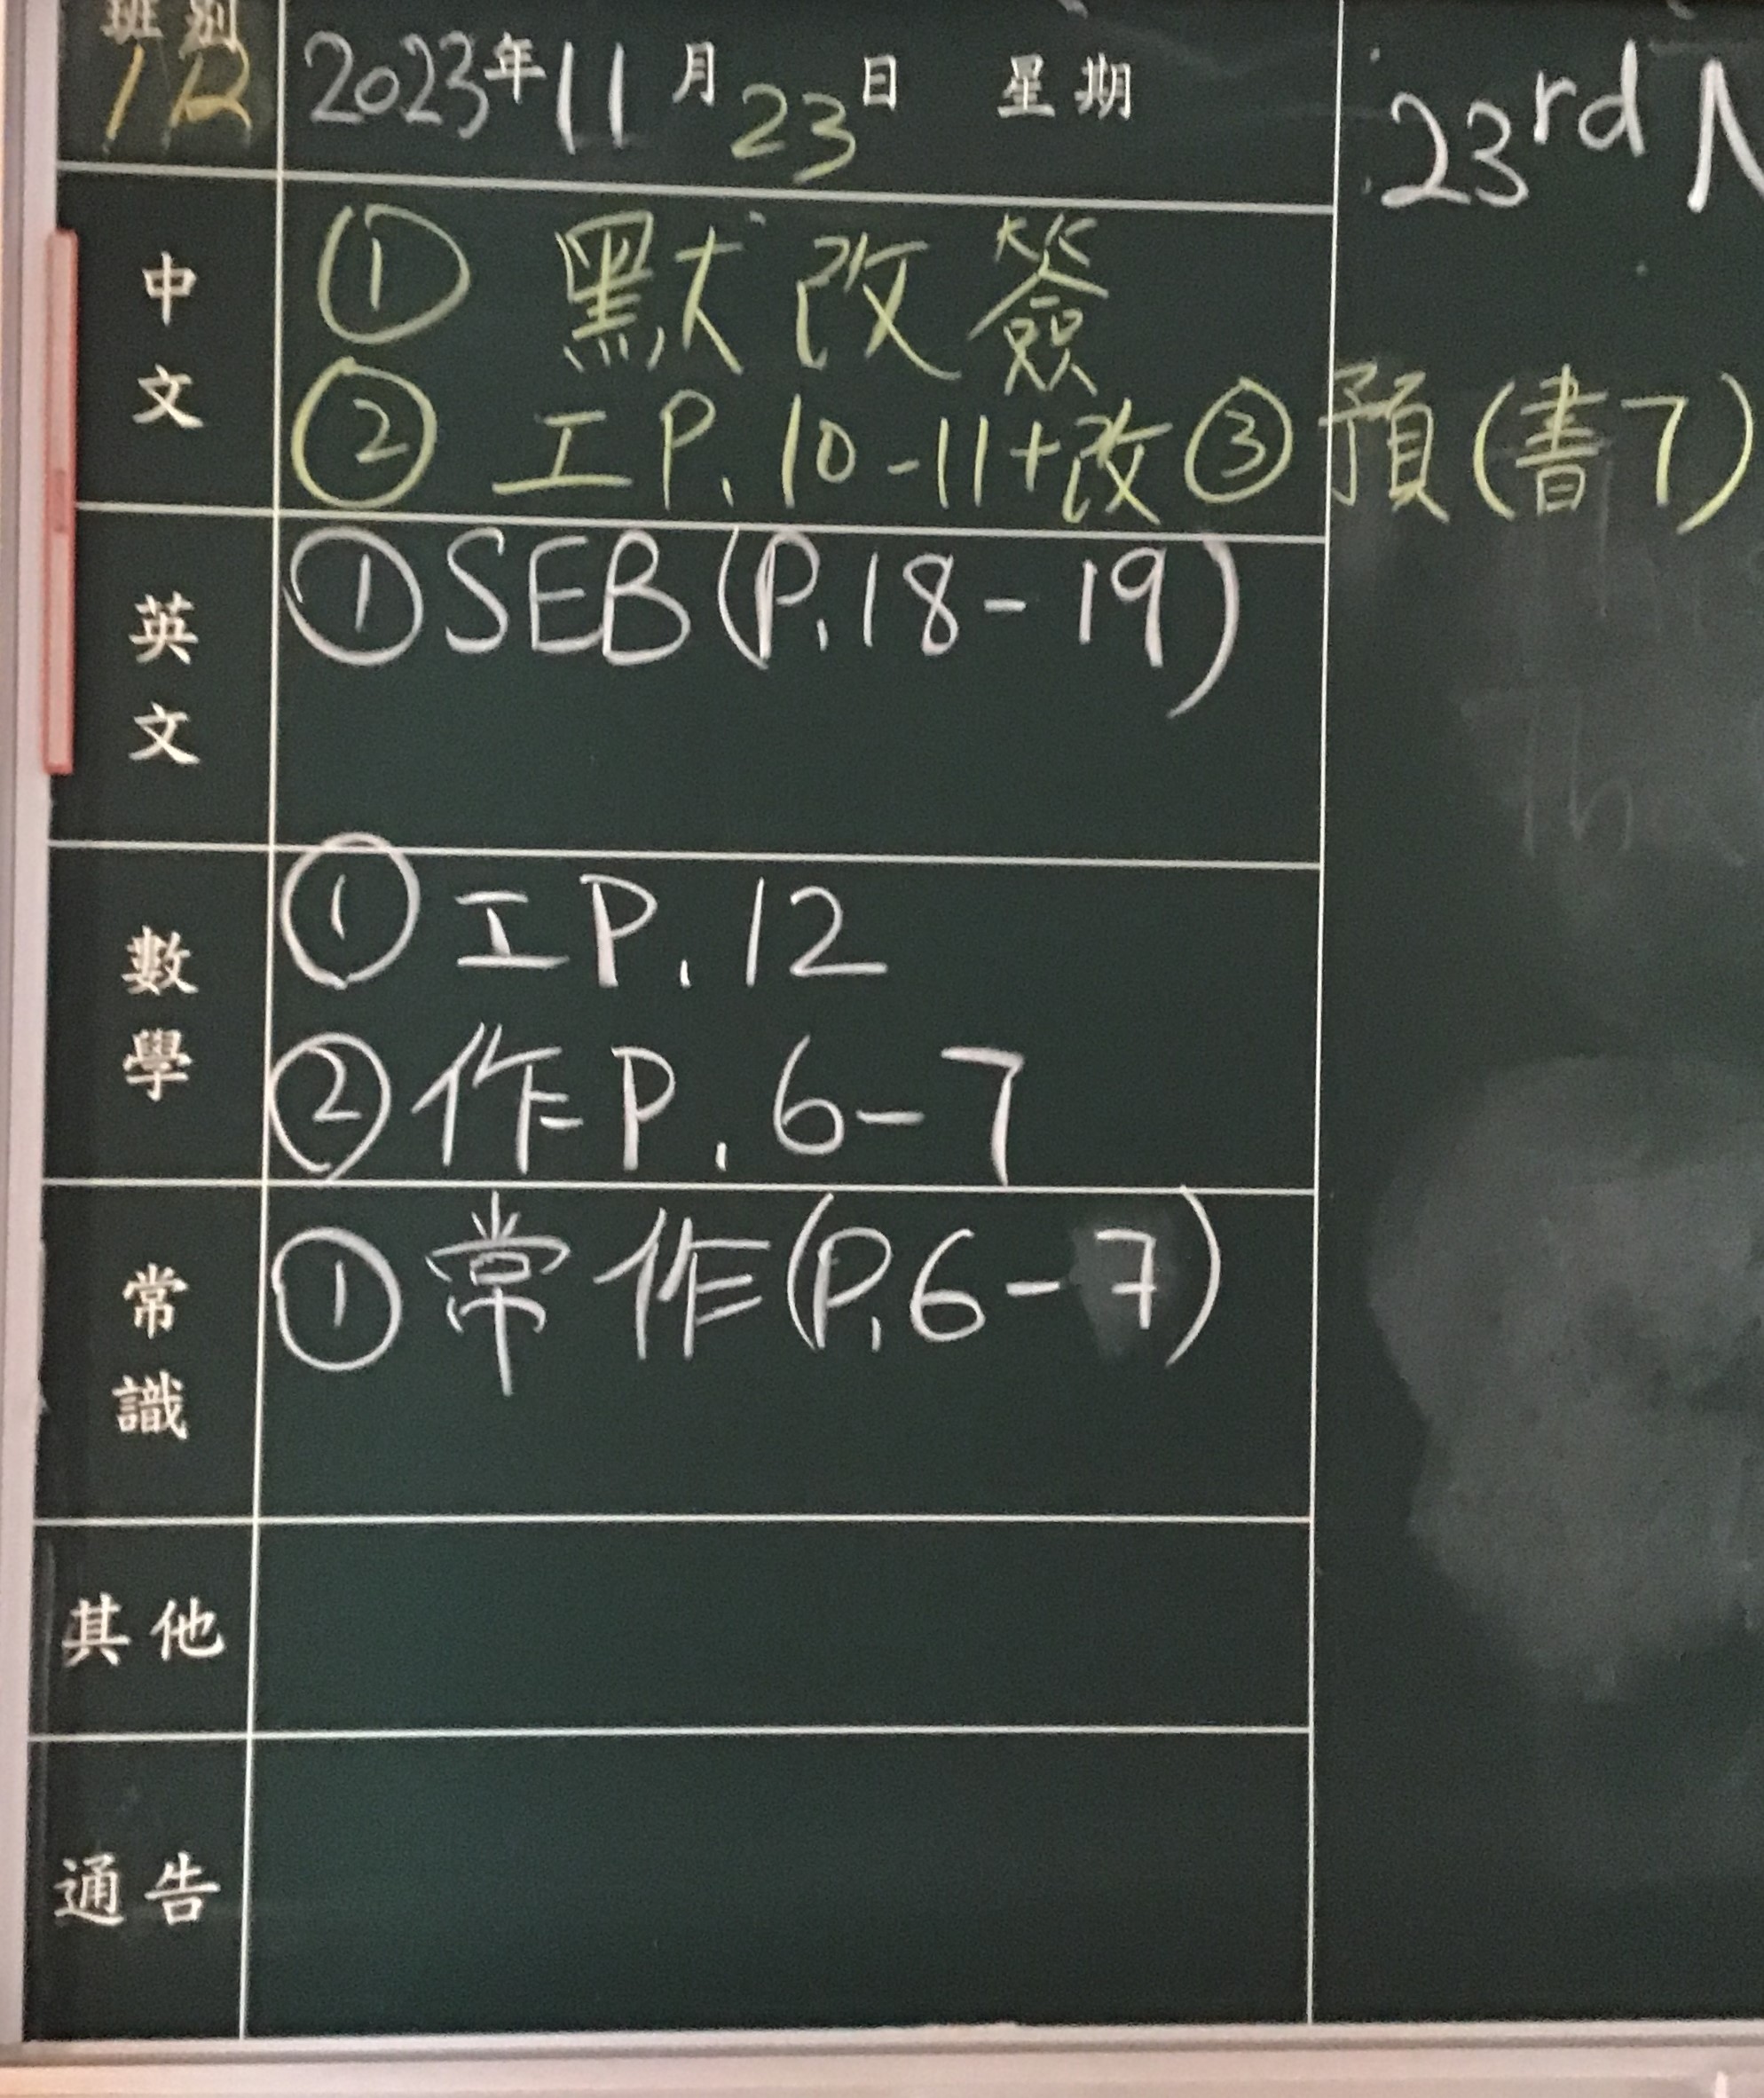 班別
2023年11月23日 星期
23rd N
中文
① 默改簽
② 工P.10-11+改 ③ 預(書7)
英文
① SEB (P.18-19)
數學
① 工P.12
② 作P.6-7
常識
① 常作(P.6-7)
其他
通告